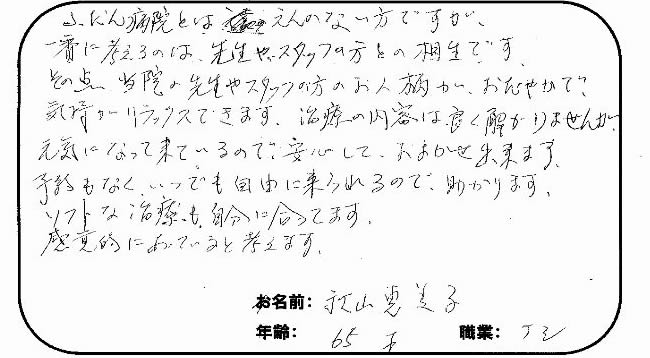 ふだん病院とは えんのない方ですが、
一番に考えるのは、先生や、スタッフの方との相性です。
その点 当院の先生やスタッフの方のお人柄が、おだやかで、
気持がリラックスできます。治療の内容は良く解かりませんが、
元気になって来ているので、安心して、おまかせ出来ます。
予約もなく、いつでも自由に来られるので、助かります。
ソフトな治療も、自分に合ってます。
感覚的にあっていると考えます。
お名前: 秋山恵美子
年齢: 65才 職業: